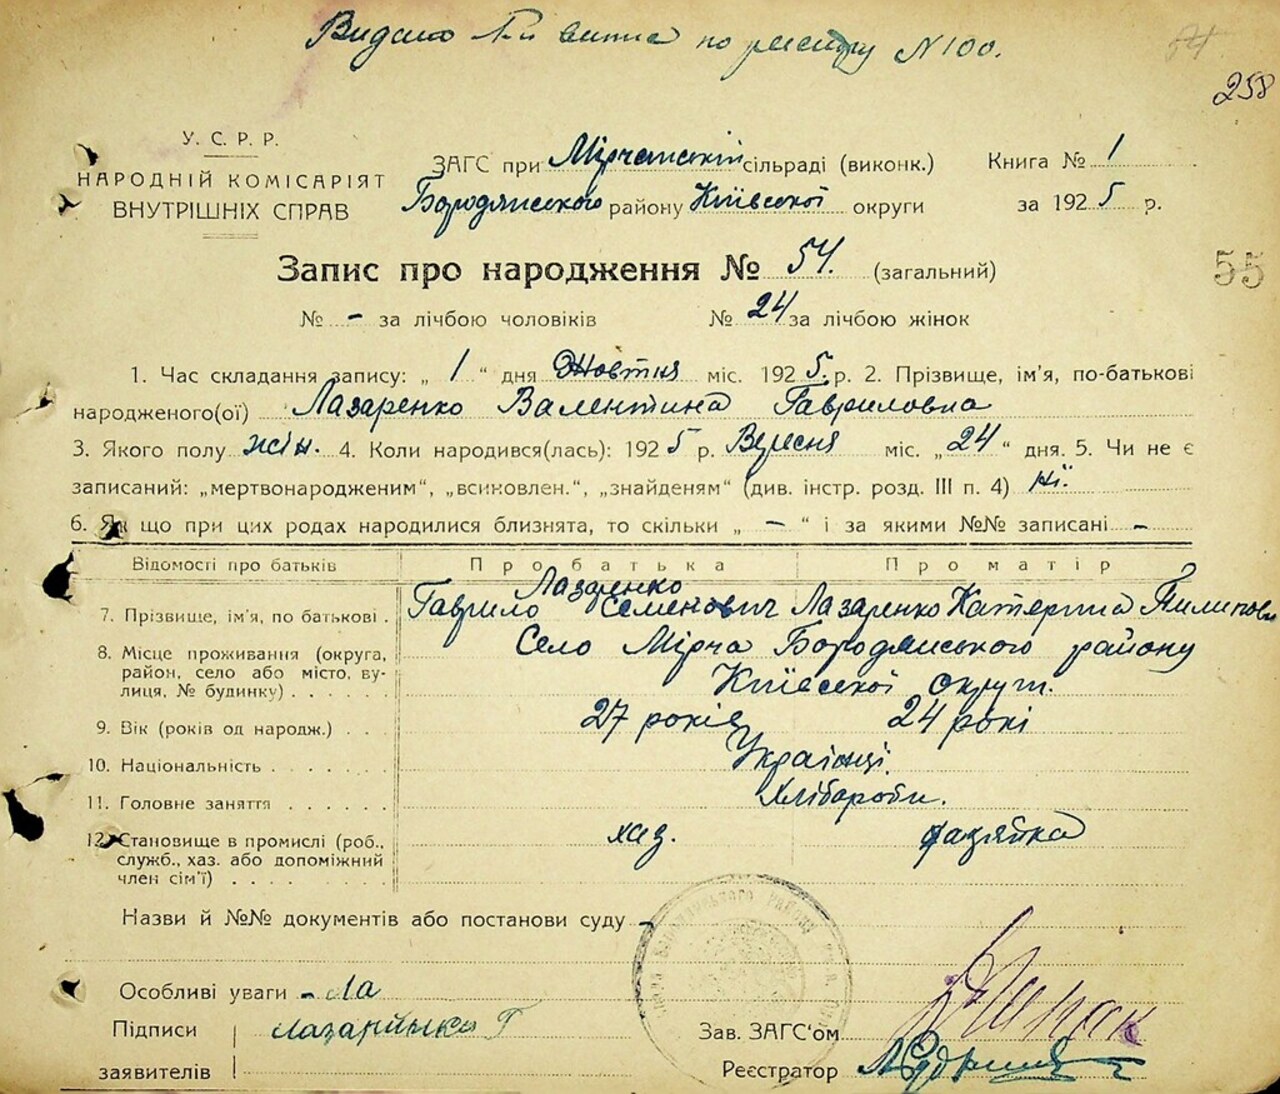 Видано по реєстру N 100.
54
258
У. С. Р. Р.
НАРОДНІЙ КОМІСАРІЯТ
ВНУТРІШНІХ СПРАВ
ЗАГС при Мірчанській сільраді (виконк.)
Бородянського району Київської округи
Книга № 1
за 1925 р.
Запис про народження № 54. (загальний)
55
№ - за лічбою чоловіків № 24 за лічбою жінок
1. Час складання запису: „ 1 “ дня Жовтня міс. 1925 р. 2. Прізвище, ім'я, по-батькові
народженого(ої) Лазаренко Валентина Гавриловна
3. Якого полу жін. 4. Коли народився(лась): 1925 р. Вересня міс. „24“ дня. 5. Чи не є
записаний: „мертвонародженим“, „всиновлен.“, „знайденям“ (див. інстр. розд. III п. 4) Ні.
6. Як що при цих родах народилися близнята, то скільки „ - “ і за якими №№ записані -
Відомості про батьків Про батька Про матір
7. Прізвище, ім'я, по батькові . Лазаренко Гаврило Семенович Лазаренко Катерина Пилиповн
8. Місце проживання (округа, Село Мірча Бородянського району
район, село або місто, ву-
лиця, № будинку) . . . . Київської округи.
9. Вік (років од народж.) . . . 27 років 24 рокі
10. Національність . . . . . . . Українці.
11. Головне заняття . . . . . . Хлібароби.
12. Становище в промислі (роб., хаз. хазяйка
служб., хаз. або допоміжний
член сім'ї) . . . . . . . .
Назви й №№ документів або постанови суду -
Особливі уваги - Ла
Підписи лазаринько Г
заявителів
Зав. ЗАГС'ом
Реєстратор